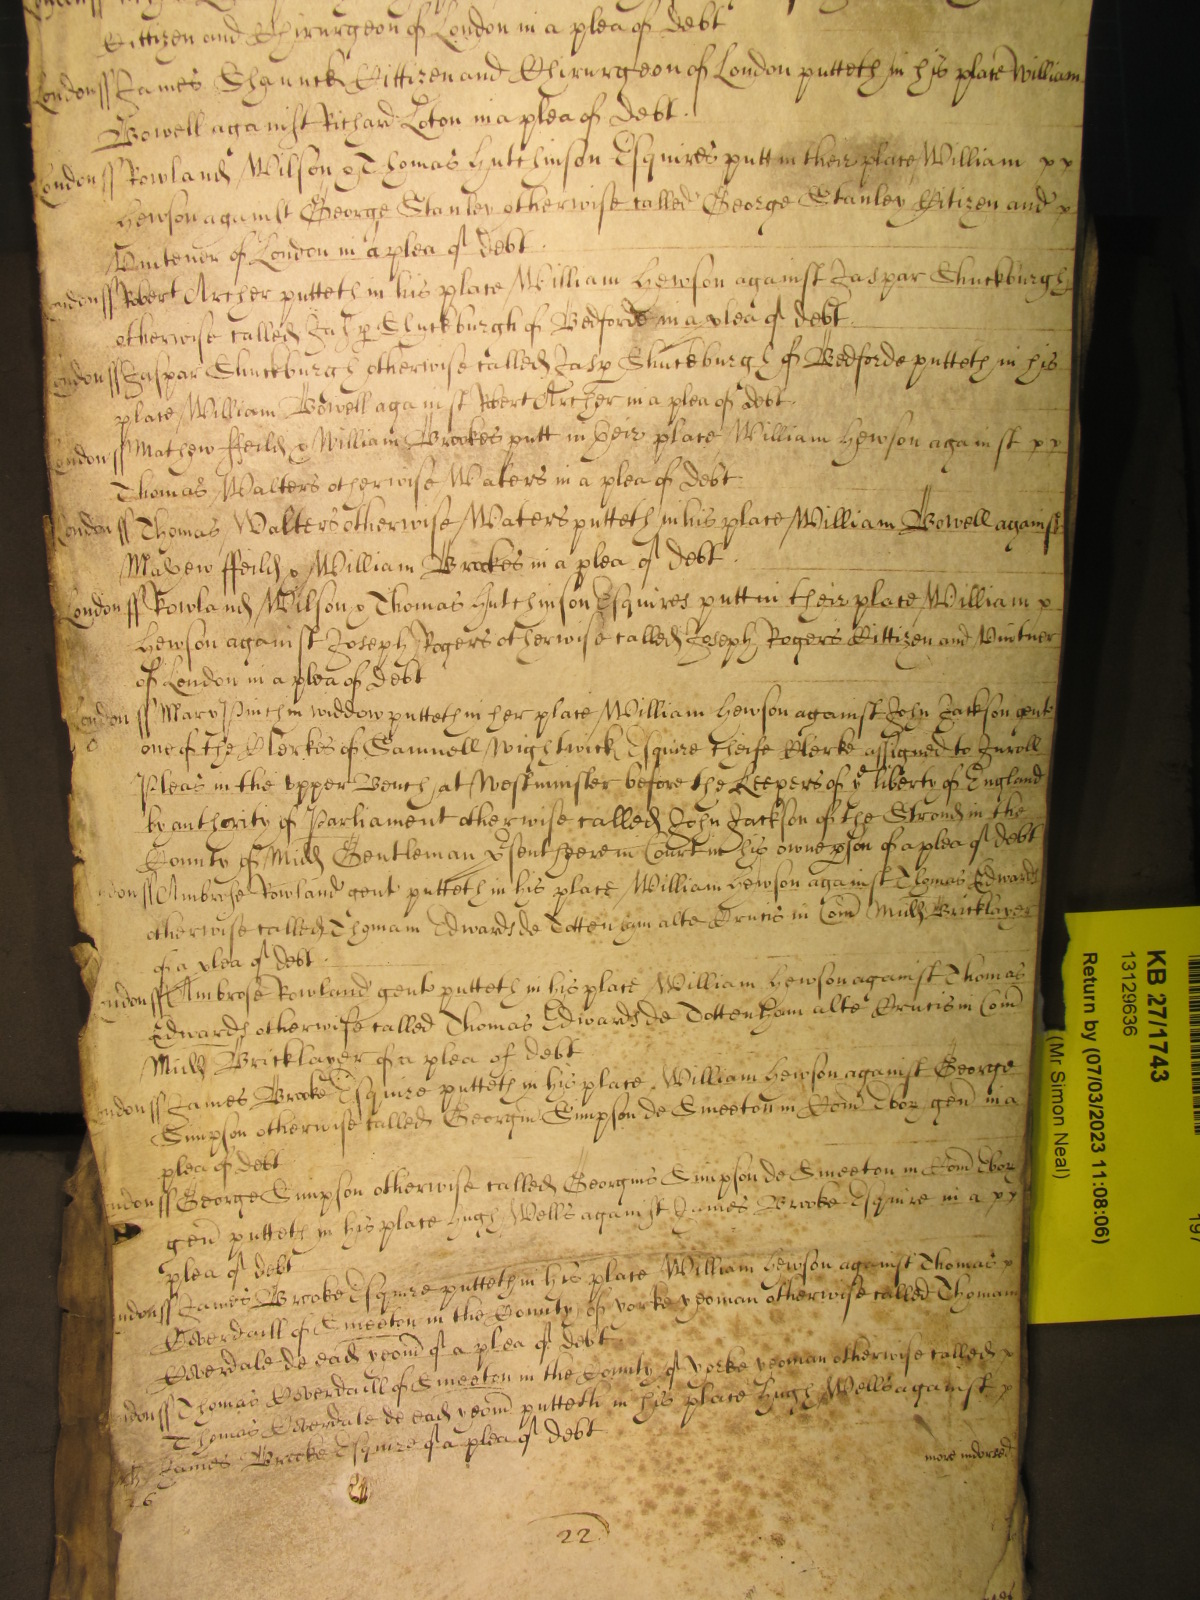 Cittizen and Chirurgeon of London in a plea of debt
London ss James Shaunck Cittizen and Chirurgeon of London putteth in his place William
Bowell against Richard Loton in a plea of debt.
London ss Rowland Wilson & Thomas Hutchinson Esquires putt in their place William
Hewson against George Stanley otherwise called George Stanley Citizen and
Vintener of London in a plea of debt.
London ss Robert Archer putteth in his place William Hewson against Jaspar Shuckburgh
otherwise called Jasp Shuckburgh of Bedforde in a plea of debt.
London ss Jaspar Shuckburgh otherwise called Jasp Shuckburgh of Bedforde putteth in his
place William Bowell against Robert Archer in a plea of debt.
London ss Mathew ffeild & William Brookes putt in their place William Hewson against
Thomas Walters otherwise Waters in a plea of debt.
London ss Thomas Walters otherwise Waters putteth in his place William Bowell against
Mathew ffeild & William Brookes in a plea of debt.
London ss Rowland Wilson & Thomas Hutchinson Esquires putt in their place William
Hewson against Joseph Rogers otherwise called Joseph Rogers Cittizen and Vintner
of London in a plea of debt
London ss Mary Pinchin widdow putteth in her place William Hewson against John Jackson gent
one of the Clerkes of Samuell Wightwick Esquire cheife Clerke assigned to Inroll
Pleas in the upper Bench at Westminster before the Keepers of ye liberty of England
by authority of Parliament otherwise called John Jackson of the Strond in the
County of Midd Gentleman psent heere in Court in his owne pson of a plea of debt
London ss Ambrose Rowland gent putteth in his place William Hewson against Thomas Edwards
otherwise called Thomam Edwards de Tottenham alte Crucis in Com Midd Bricklayer
of a plea of debt.
London ss Ambrose Rowland gent putteth in his place William Hewson against Thomas
Edwards otherwise called Thomas Edwards de Tottenham alte Crucis in Com
Midd Bricklayer of a plea of debt
London ss James Brooke Esquire putteth in his place William Hewson against George
Simpson otherwise called Georgiu Simpson de Smeeton in Com Ebor gen in a
plea of debt
London ss George Simpson otherwise called Georgius Simpson de Smeeton in Com Ebor
gen putteth in his place Hugh Wells against James Brooke Esquire in a
plea of debt
London ss James Brooke Esquire putteth in his place William Hewson against Thomas
Coverdaill of Smeeton in the County of yorke yeoman otherwise called Thomam
Coverdale de ead yeom of a plea of debt
London ss Thomas Coverdaill of Smeeton in the County of yorke yeoman otherwise called
Thomas Coverdale de ead yeom putteth in his place Hugh Wells against
James Brooke Esquire of a plea of debt
more indorsed
22
KB 27/1743
13129636
Return by (07/03/2023 11:08:06)
(Mr Simon Neal)
197